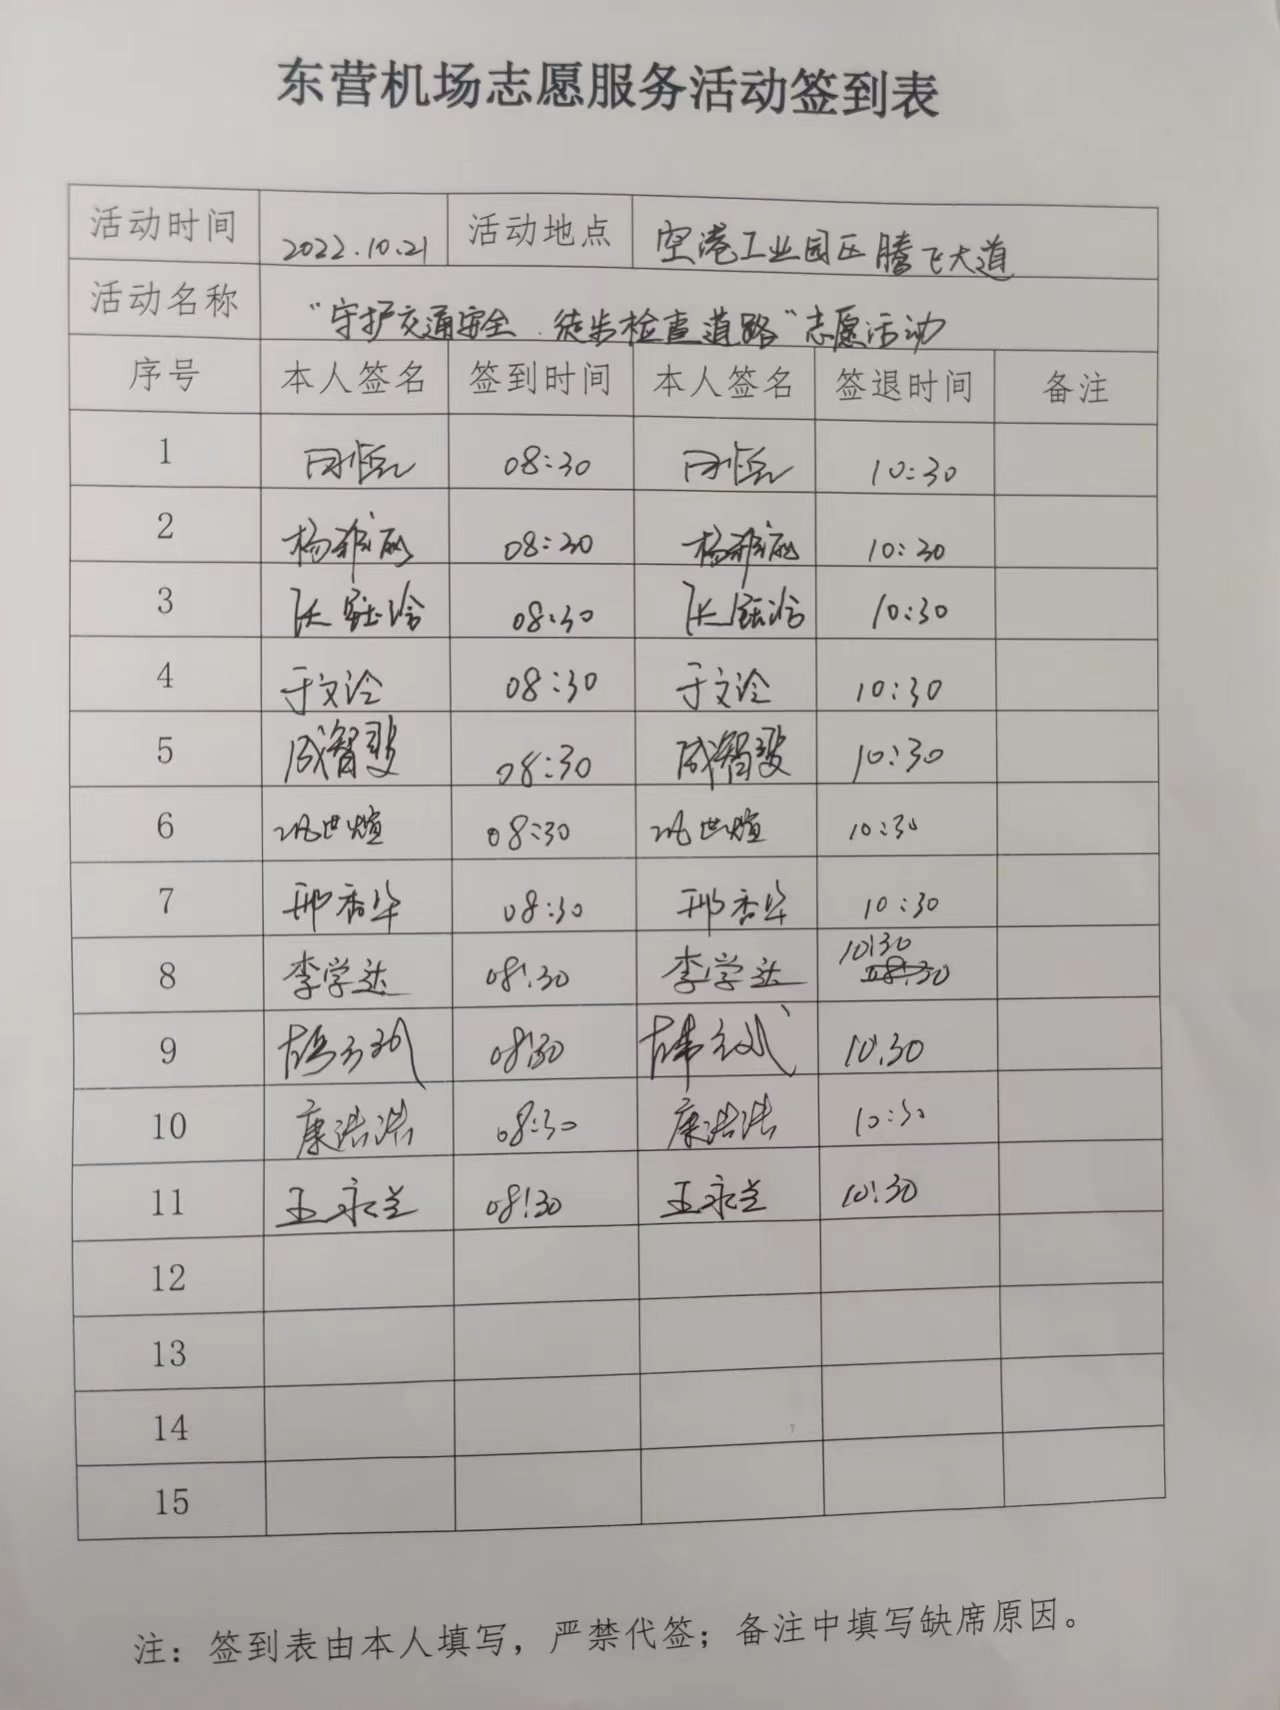 东营机场志愿服务活动签到表
活动时间 2022.10.21 活动地点 空港工业园区腾飞大道
活动名称 “守护交通安全 徒步检查道路”志愿活动
序号 本人签名 签到时间 本人签名 签退时间 备注
1 08:30 10:30
2 杨 08:30 杨 10:30
3 张 08:30 张 10:30
4 于文 08:30 于文 10:30
5 成智斐 08:30 成智斐 10:30
6 世煊 08:30 世煊 10:30
7 邢香华 08:30 邢香华 10:30
8 李学达 08:30 李学达 10:30 08:30
9 08:30 10:30
10 康浩浩 08:30 康浩浩 10:30
11 王永兰 08:30 王永兰 10:30
12
13
14
15
注：签到表由本人填写，严禁代签；备注中填写缺席原因。